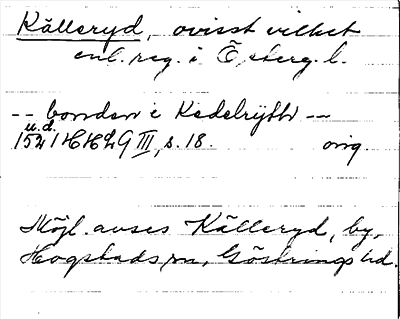 Källeryd, ovisst vilket
enl. reg. i Ö, sterg. l.
-- bonden i Kedelrijthr --
u. d.
1521 HH 29 III, s. 18. orig.
Möjl. avses Källeryd, by,
Hogstads sn, Göstrings hd.